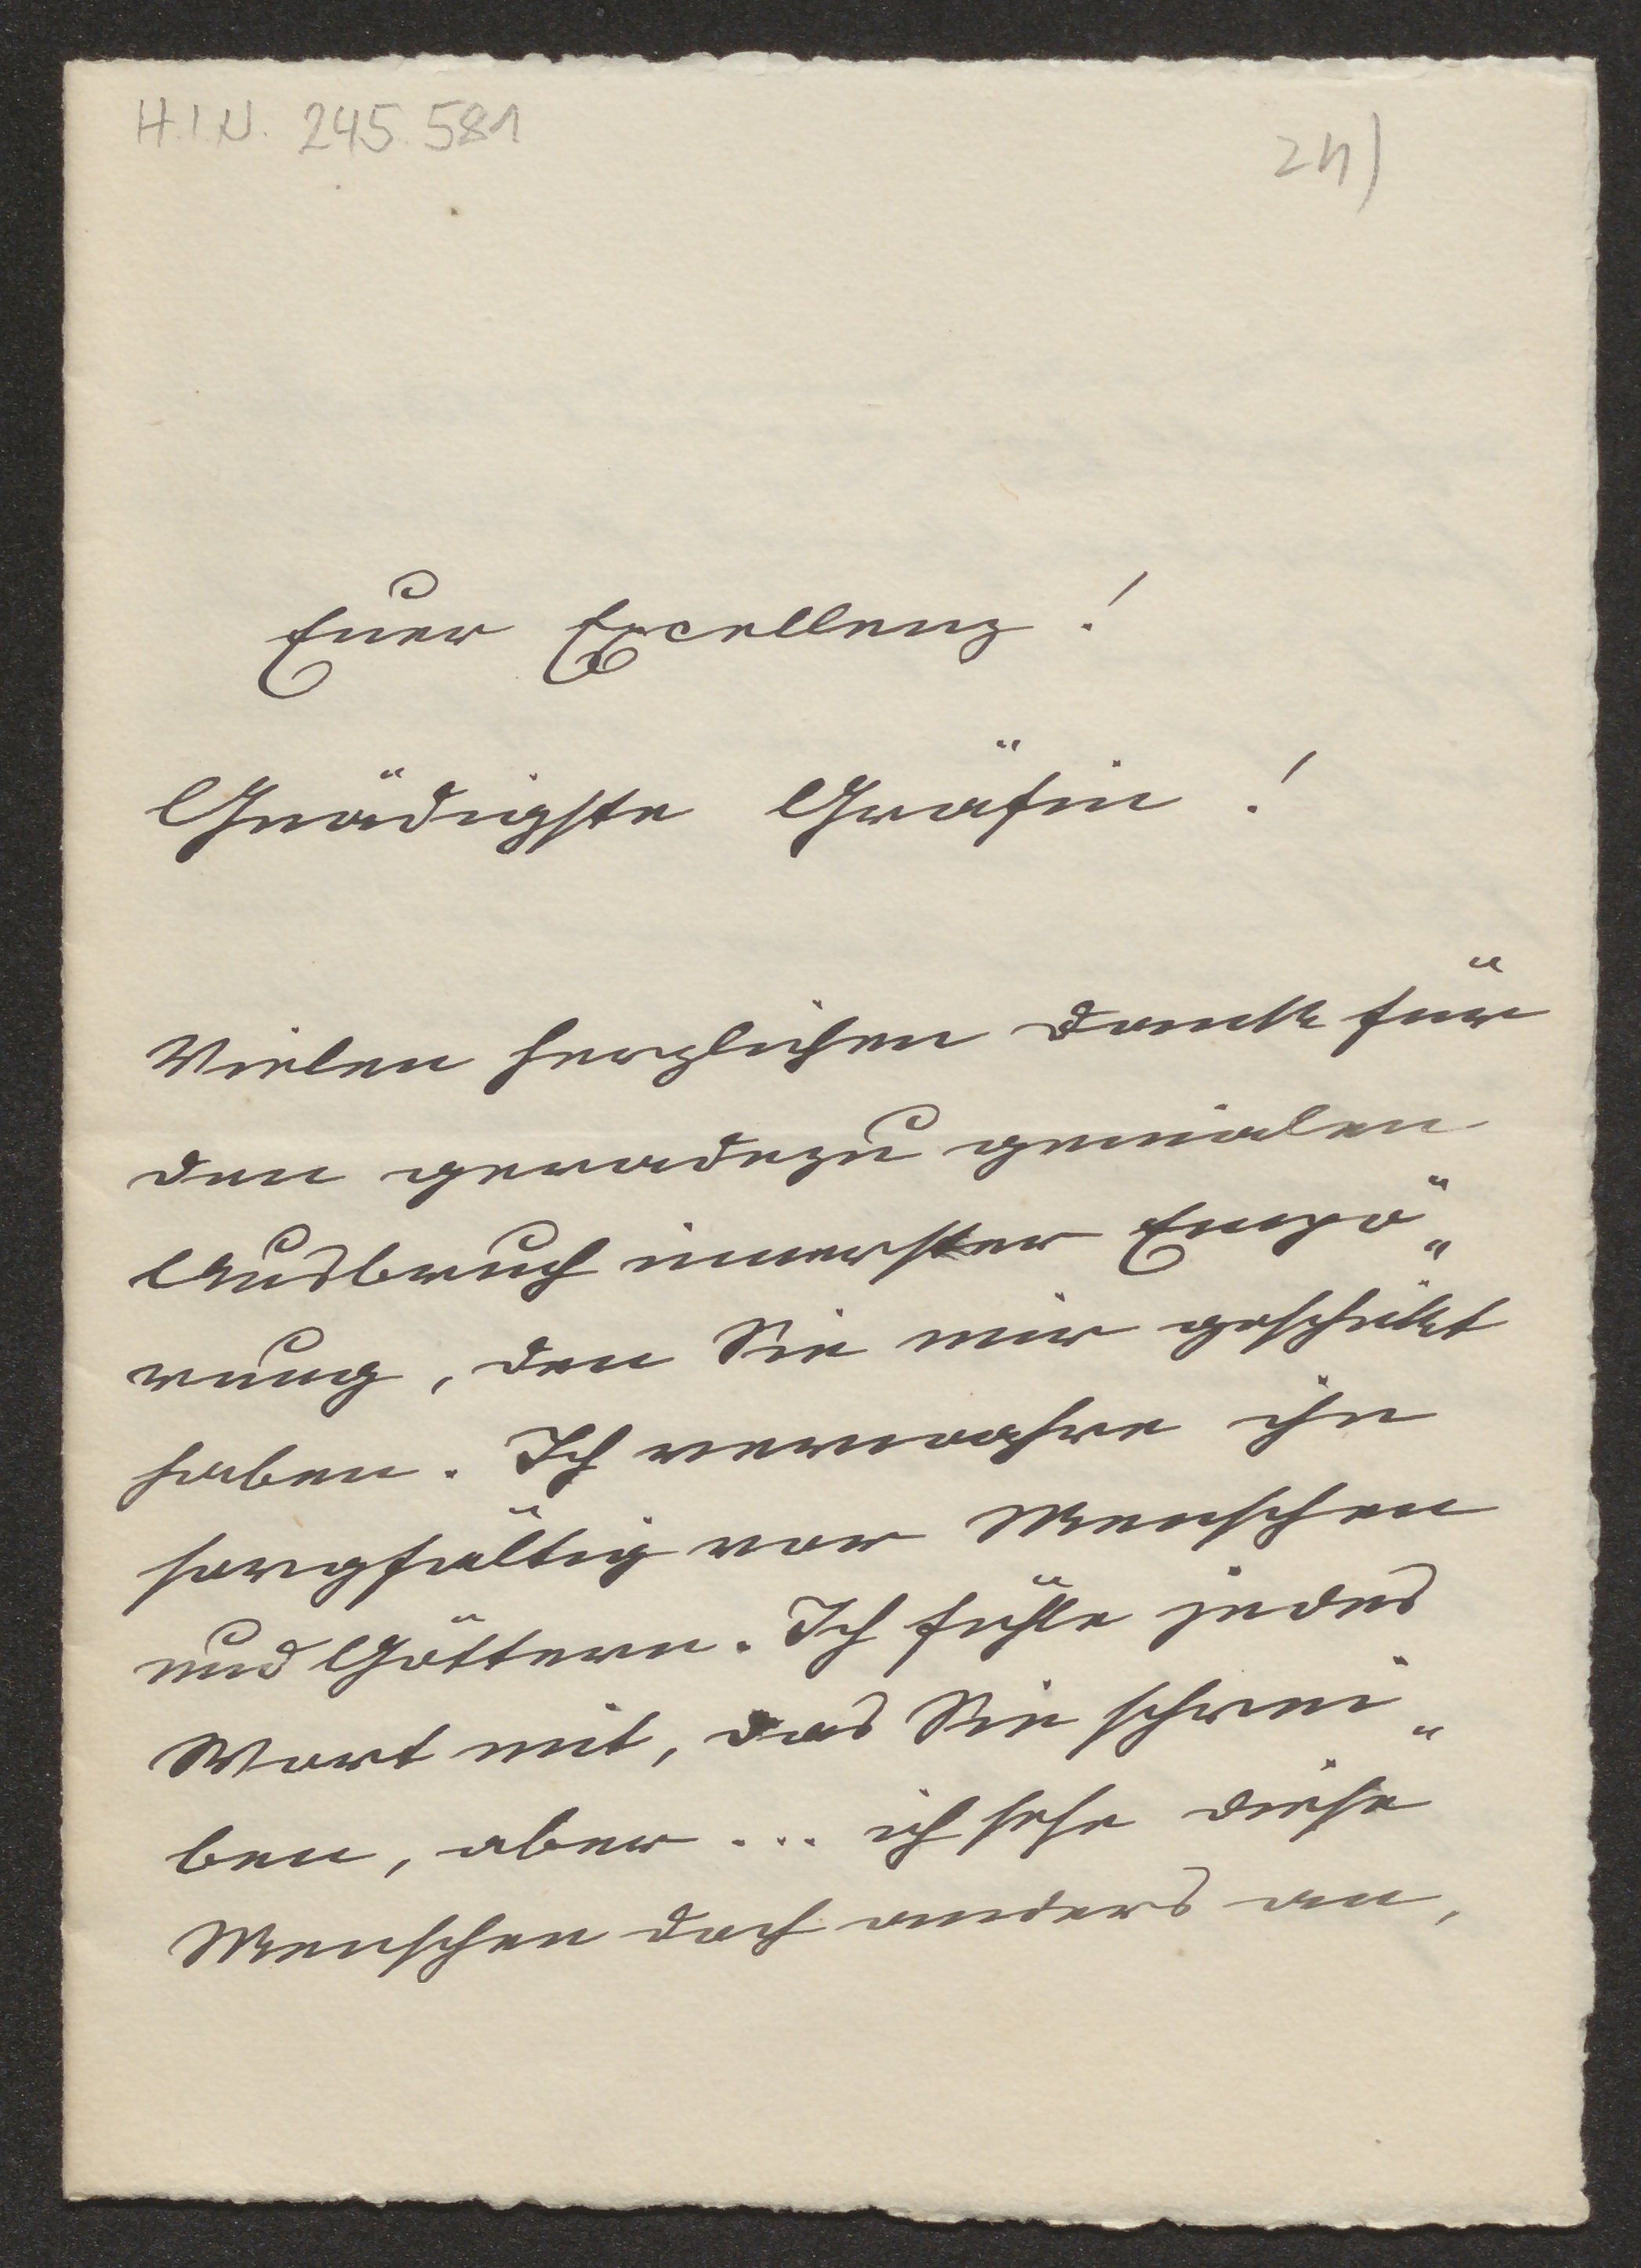 H.I.N. 245.581
24)
Euer Excellenz!
Gnädigste Gräfin!
Vielen herzlichen Dank für
den geradezu genialen
Ausbruch innerster Empö„
rung, den Sie mir geschikt
haben. Ich verwahre ihn
sorgfältig vor Menschen
und Göttern. Ich fühle jedes
Wort mit, das Sie schrei„
ben, aber... ich sehe diese
Menschen doch anders an,